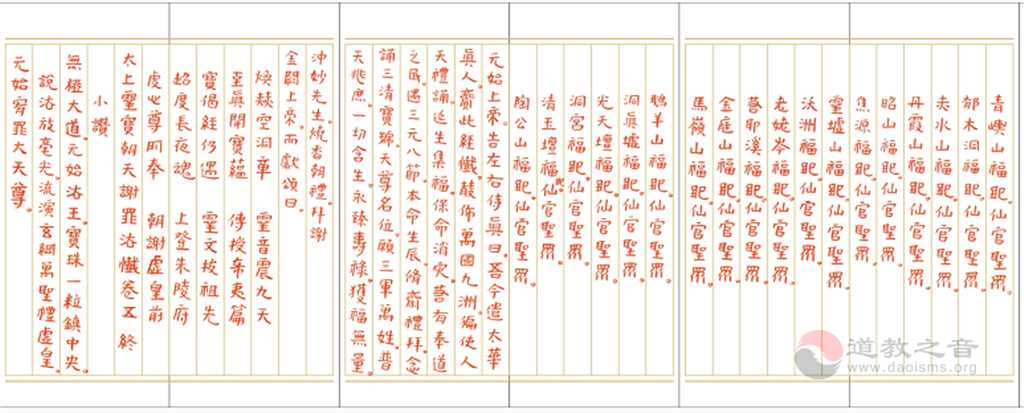 青嶼山福地。仙官聖眾。
郁木洞福地。仙官聖眾。
赤水山福地。仙官聖眾。
丹霞山福地。仙官聖眾。
昭山福地。仙官聖眾。
焦源福地。仙官聖眾。
靈墟山福地。仙官聖眾。
沃洲福地。仙官聖眾。
老姥岑福地。仙官聖眾。
若耶溪福地。仙官聖眾。
金庭山福地。仙官聖眾。
馬嶺山福地。仙官聖眾。
鵝羊山福地。仙官聖眾。
洞真墟福地。仙官聖眾。
光天壇福地。仙官聖眾。
洞宮福地。仙官聖眾。
清玉壇福地。仙官聖眾。
陶公山福地。仙官聖眾。
元始上帝。告左右侍真曰。吾今遣太華
真人。齋此經懺。敷佈萬國九洲。徧使人
天禮誦。延生集福。保命消災。若有奉道
之民。遇三元八節。本命生辰。脩齋禮拜。念
誦三清寶號。天尊名位。願三軍萬姓。普
天兆庶。一切含生。永臻壽祿。獲福無量。
沖妙先生。燒香朝禮。拜謝
金闕上帝。而獻頌曰。
煥赫空洞章 靈音震九天
至真開寶蘊 傳授希夷篇
寶偈經仍遇 靈文拔祖先
超度長夜魂 上登朱陵府
虔心尊同奉 朝謝虛皇前
太上靈寶朝天謝罪法懺卷五終
小讚
無極大道。元始法王。寶珠一粒鎮中央。
說法放毫光。流演玄綱。萬聖禮虛皇。
元始宥罪大天尊。
道教之音
www.daoisms.org